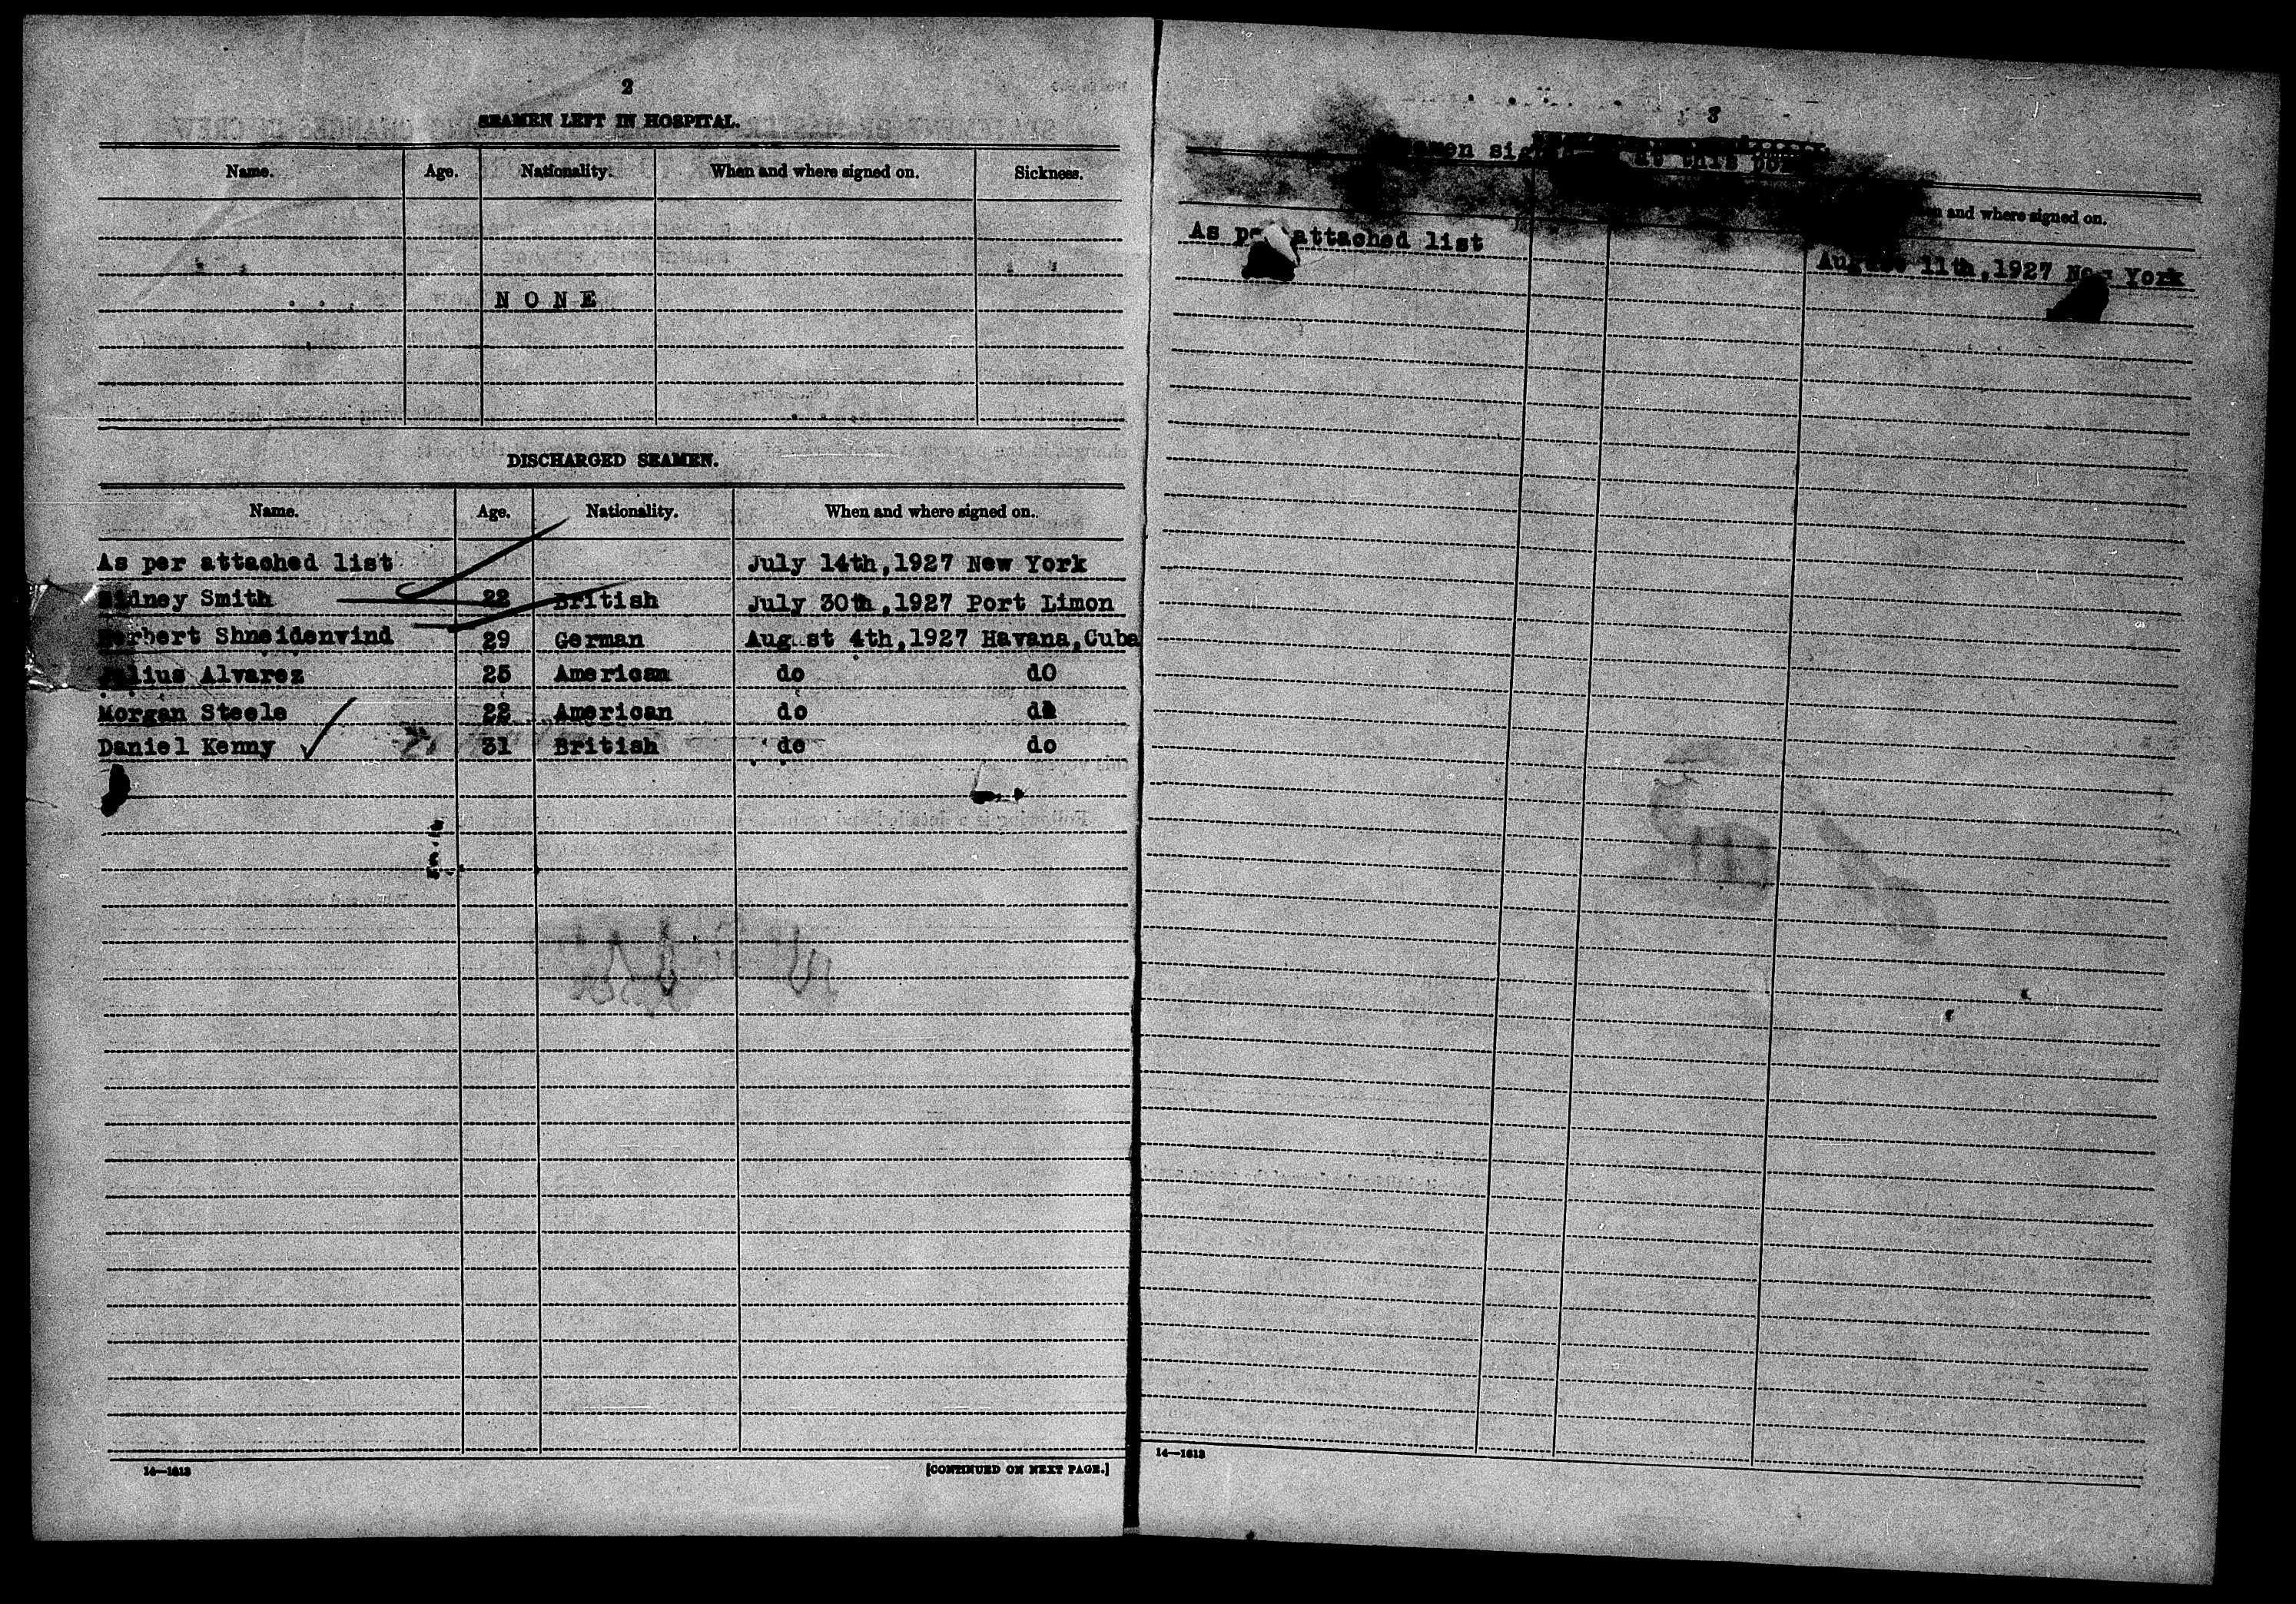 2
SEAMEN LEFT IN HOSPITAL.
Name. Age. Nationality. When and where signed on. Sickness.
N O N E
DISCHARGED SEAMEN.
Name. Age. Nationality. When and where signed on.
As per attached list July 14th,1927 New York
Sidney Smith 22 British July 30th,1927 Port Limon
Herbert Shneidenvind 29 German August 4th,1927 Havana,Cuba
Julius Alvarez 25 American do dO
Morgan Steele 22 American do
Daniel Kenny 31 British do do
14—1613
[CONTINUED ON NEXT PAGE.]
3
at this
and where signed on.
As per attached list
August 11th,1927 New York
14—1613